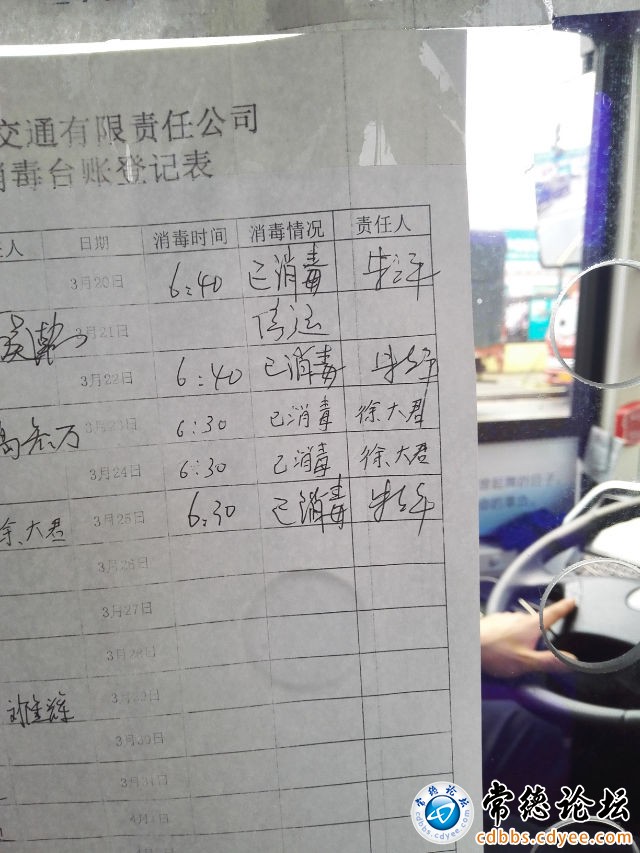 交通有限责任公司
消毒台账登记表
人 日期 消毒时间 消毒情况 责任人
3月20日 6:40 已消毒
3月21日
3月22日 6:40 已消毒
3月23日 6:30 已消毒 徐大君
3月24日 6:30 已消毒 徐大君
徐大君 3月25日 6:30 已消毒
3月26日
3月27日
3月28日
3月29日
3月30日
3月31日
4月1日
常德论坛
cdbbs.cdyee.com